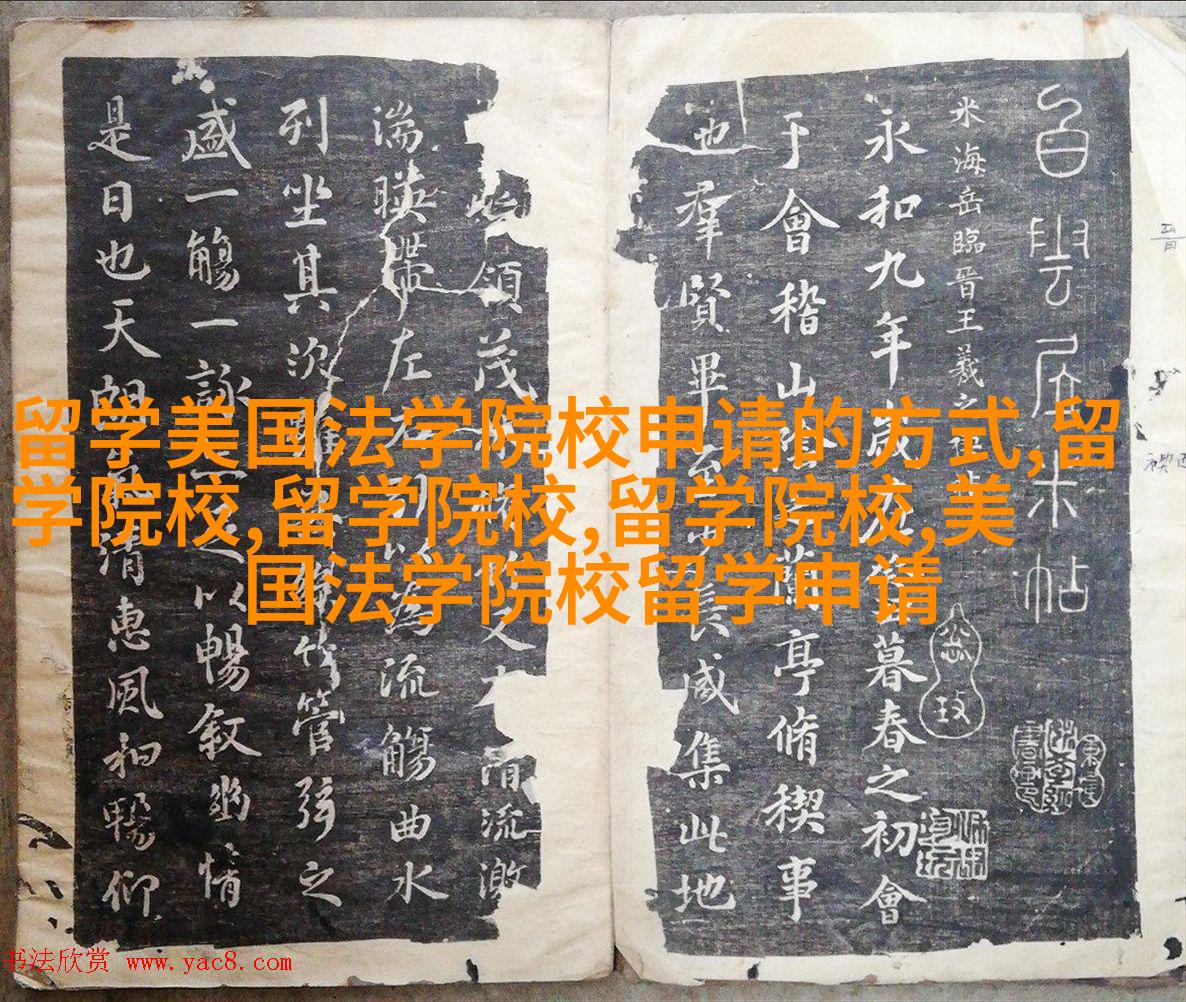 白雲居米帖
米海岳臨晉王羲之
永和九年歲暮春之初會
于會稽山陰蘭亭脩稧事
也羣賢畢至長咸集此地
領茂又清流激
湍暎帶左右引以為流觴曲水
列坐其次雖竹管弦之
盛一觴一詠以暢敘幽情
是日也天朗氣清惠風和暢仰
留学美国法学院校申请的方式,留
学院校,留学院校,留学院校,美
国法学院校留学申请
书法欣赏 www.yac8.com